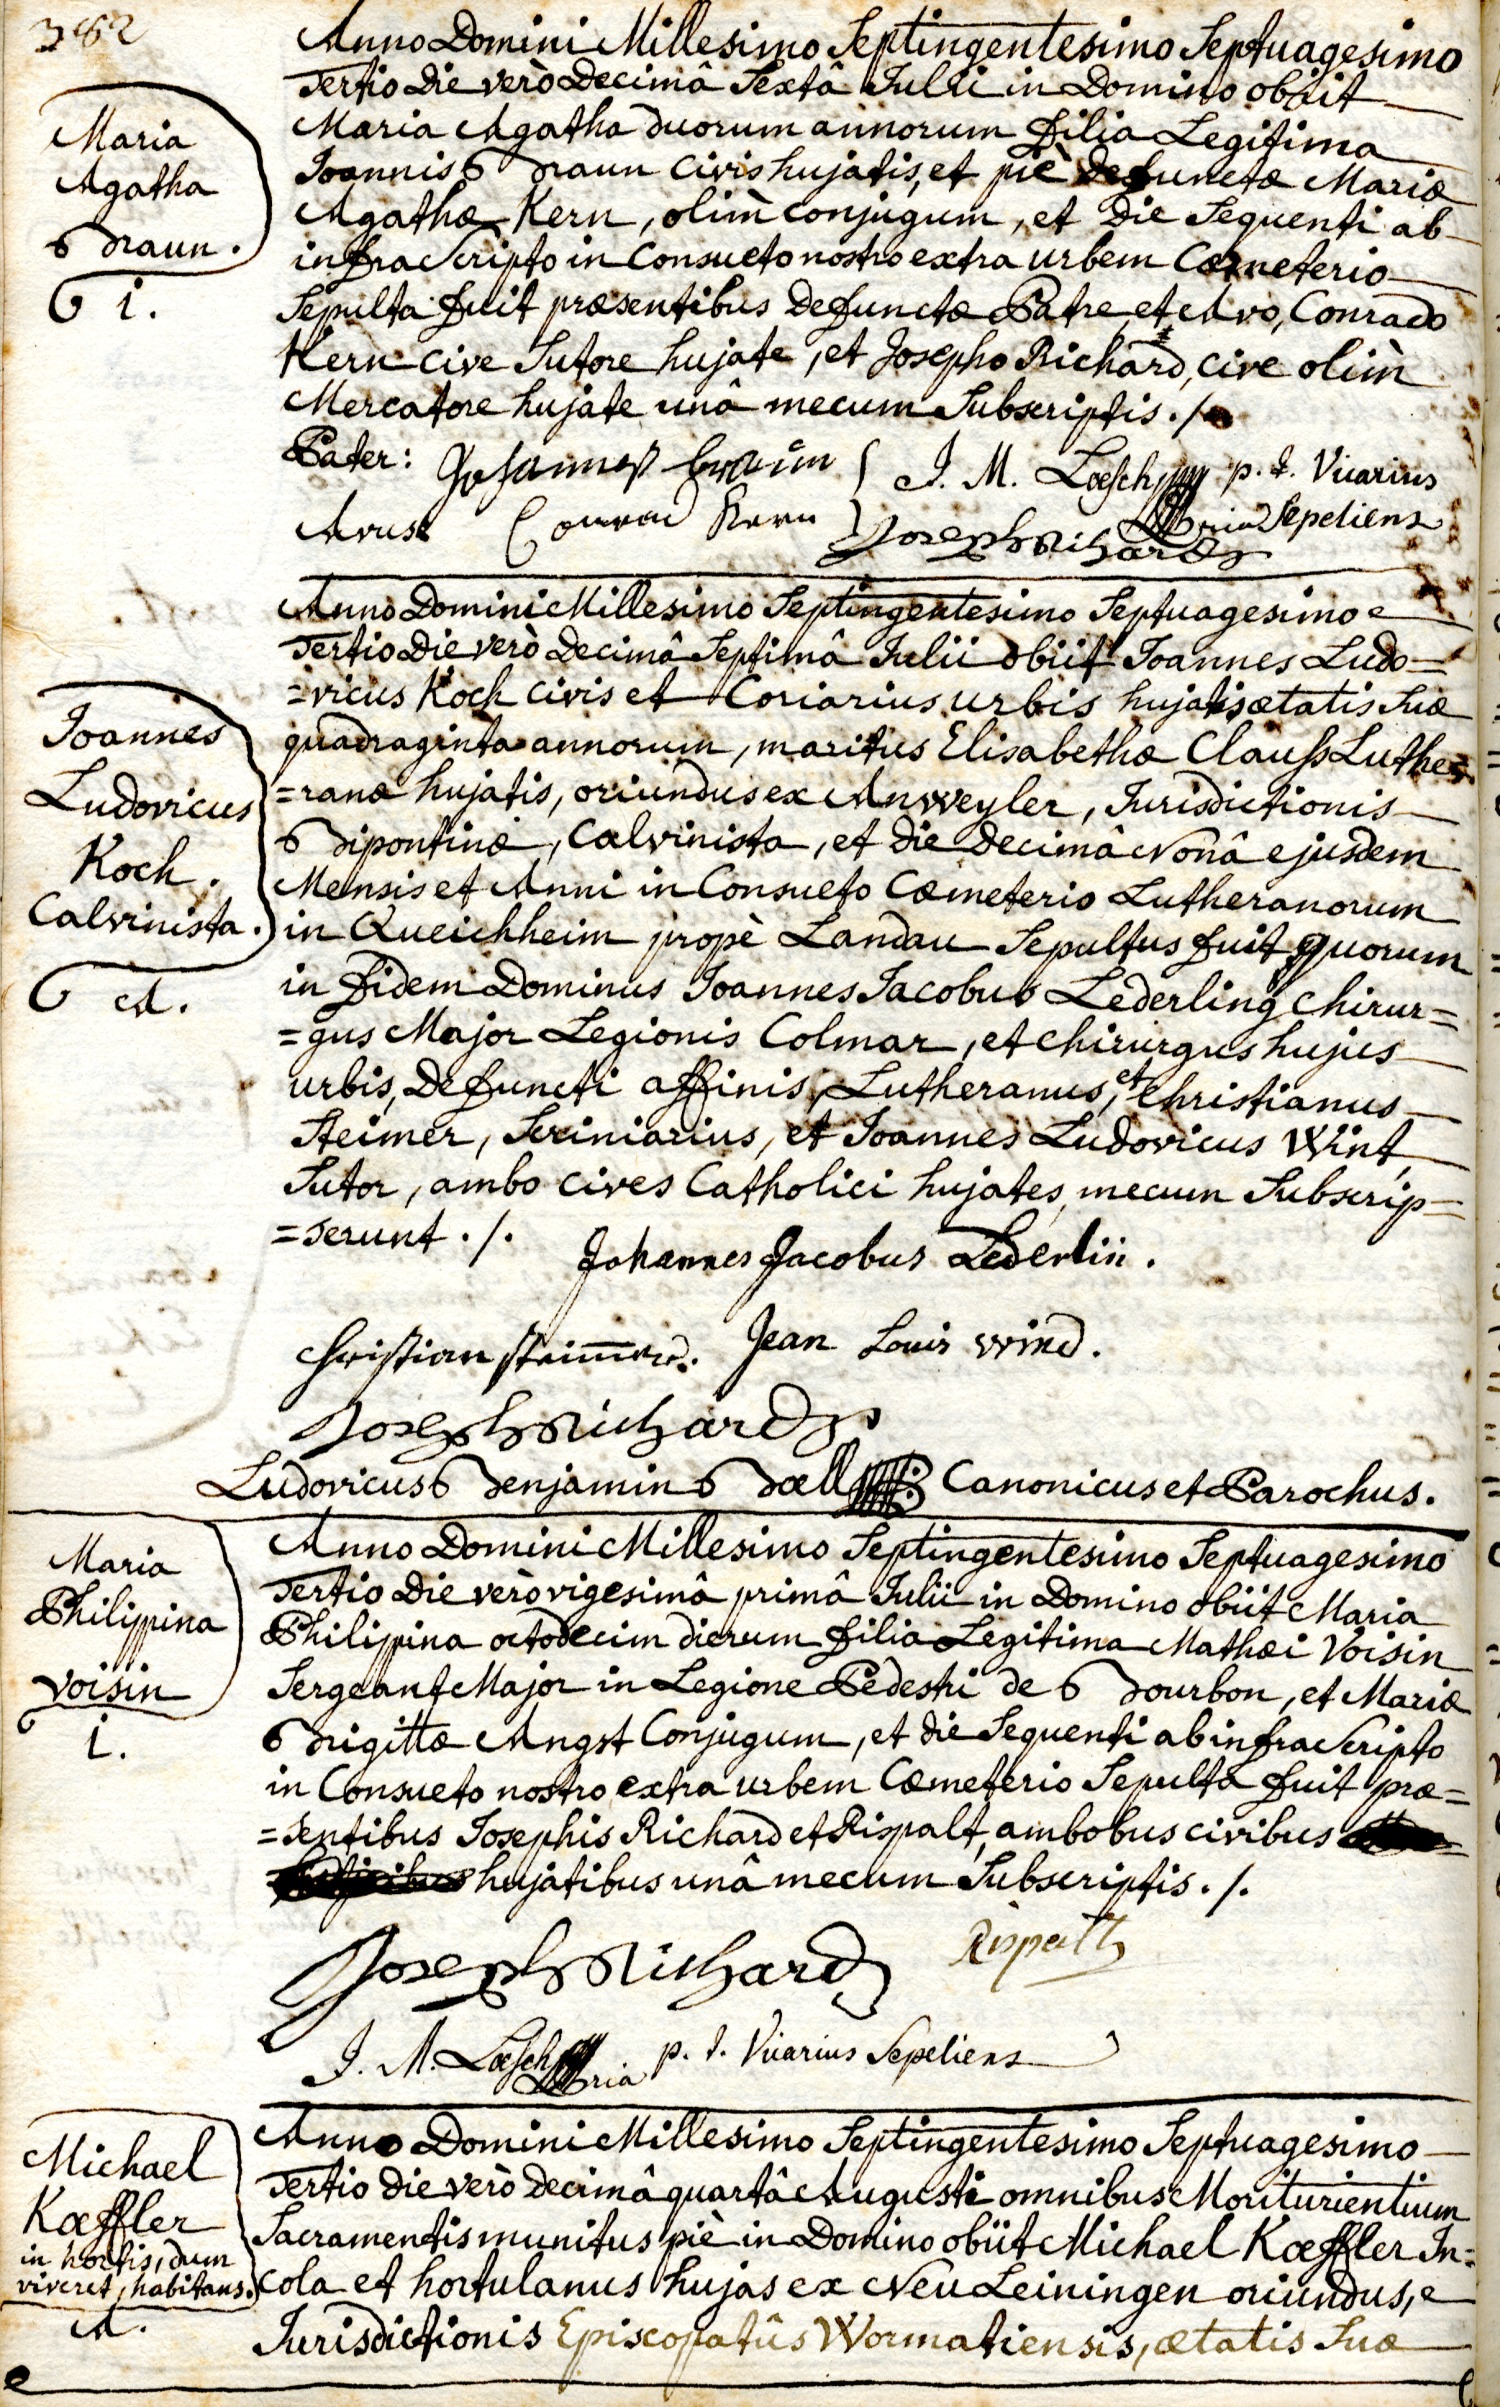 382
Maria
Agatha
Braun.
B i.
Anno Domini Millesimo Septingentesimo Septuagesimo
Tertio Die verò Decimâ Sextâ Julii in Domino obiit
Maria Agatha duorum annorum filia Legitima
Joannis Braun civis hujatis, et piè defunctæ Mariæ
Agathæ Kern, olim̀ conjugum, et Die Sequenti ab
infra Scripto in Consueto nostro extra urbem Cœmeterio
Sepulta fuit præsentibus Defunctæ Patre, et Avo, Conrado
Kern cive Sutore hujate, et Josepho Richard, cive olim̀
Mercatore hujate unâ mecum Subscriptis ./.
Pater: Johannes braun { J. M. Lœsch p. t. Vicarius
Avus: Conrad Kern } Joseph Richard Sepeliens
Joannes
Ludovicus
Koch.
Calvinista.
B A.
Anno Domini Millesimo Septingentesimo Septuagesimo
Tertio Die verò Decimâ Septimâ Julii obiit Joannes Ludo=
=vicus Koch civis et Coriarius urbis hujatis ætatis Suæ
quadraginta annorum, maritus Elisabethæ Clauss Luthe=
=ranæ hujatis, oriundus ex Anweyler, Jurisdictionis
Bipontinæ, Calvinista, et die Decimâ Nonâ ejusdem
Mensis et Anni in Consueto Cœmeterio Lutheranorum
in Queichheim propè Landau Sepultus fuit quorum
in fidem Dominus Joannes Jacobus Lederling chirur=
=gus Major Legionis Colmar, et chirurgus hujus
urbis, Defuncti affinis, Lutheranus, et Christianus
Steimer, Scriniarius, et Joannes Ludovicus Wint,
Sutor, ambo cives Catholici hujates, mecum Subscrip=
=serunt ./.
Johannes Jacobus Lederlin.
Christian Steimmer. Jean Louis wind.
Joseph Richard
Ludovicus Benjamin Boell Canonicus et Parochus.
Maria
Philippina
Voisin
i.
Anno Domini Millesimo Septingentesimo Septuagesimo
Tertio Die verò vigesimâ primâ Julii in Domino obiit Maria
Philippina octodecim dierum filia Legitima Mathæi Voisin
Sergeant Major in Legione Pedestri de Bourbon, et Mariæ
Brigittæ Angst Conjugum, et die Sequenti ab infra Scripto
in Consueto nostro extra urbem Cœmeterio Sepulta fuit præ=
=sentibus Josephis Richard et Rispalt, ambobus civibus
hujatibus unâ mecum Subscriptis ./.
Joseph Richard Rispalt
J. M. Lœsch p. t. Vicarius Sepeliens
Michael
Kœffler
in hortis, dum
viveret, habitans.
A.
Anno Domini Millesimo Septingentesimo Septuagesimo
Tertio die verò Decimâ quartâ Augusti omnibus Moriturientium
Sacramentis munitus piè in Domino obiit Michael Kœffler In=
cola et hortulanus hujas ex Neu Leiningen oriundus,
Jurisdictionis Episcopatûs Wormatiensis, ætatis Suæ